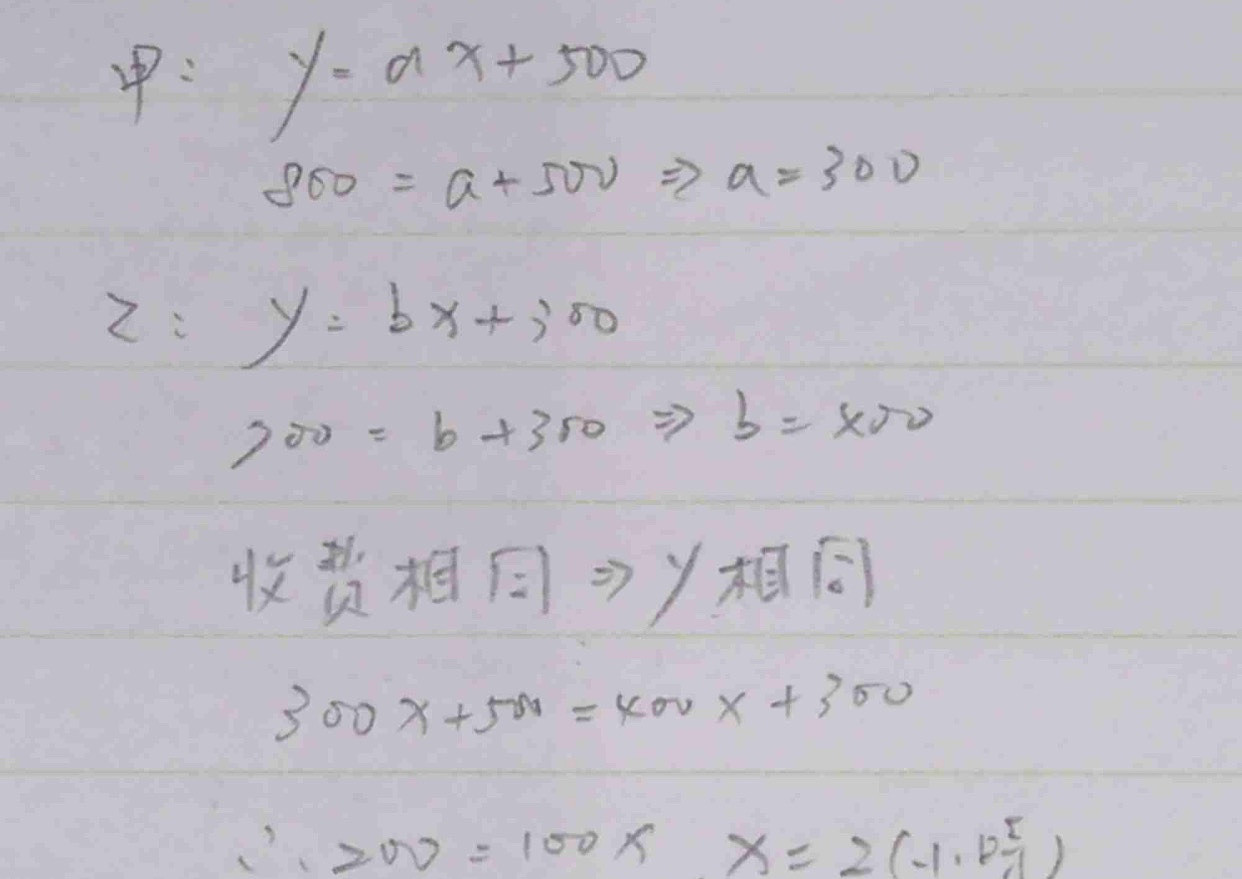 甲: y=ax+500
800=a+500⇒a=300
乙: y=bx+300
700=b+300⇒b=400
收费相同⇒y相同
300x+500=400x+300
∴200=100x x=2(小时)